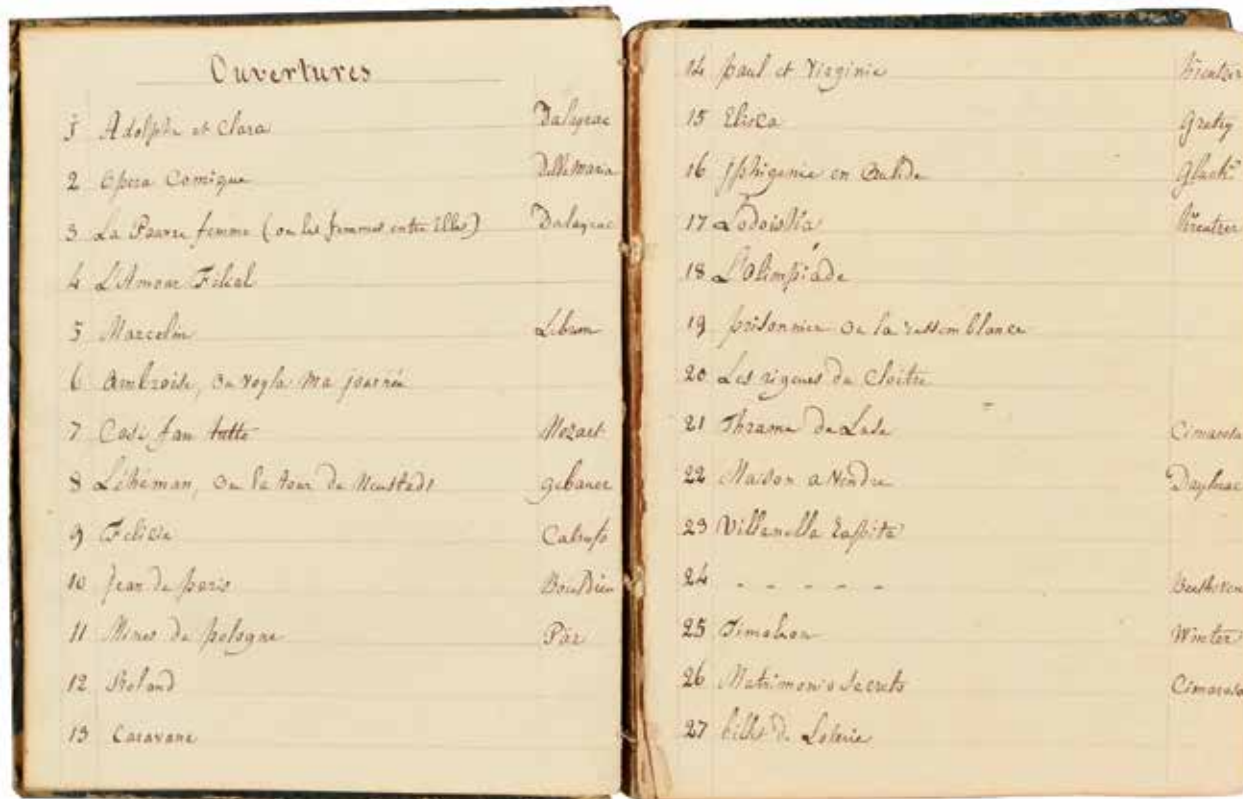 Ouvertures
1 Adolphe et Clara Dalayrac
2 Opera Comique DellaMaria
3 La Pauvre femme (ou les femmes entre Elles) Dalayrac
4 L'Amour Filial
5 Marcelin Lebrun
6 Ambroise, ou voyla ma journée
7 Cosi fan tutte Mozart
8 Léhéman, ou la tour de Neustadt gebauer
9 Felicie Catrufo
10 Jean de paris Boieldieu
11 Mines de pologne Pär
12 Roland
13 Caravane
14 paul et Virginie Kreutzer
15 Elisca Gretry
16 jphigenie en Aulide Gluck
17 Lodoiska Kreutzer
18 L'Olimpiade
19 prisonnier ou la ressemblance
20 Les rigeurs du Cloitre
21 Thrame Deluse Cimarosa
22 Maison a Vendre Daylerac
23 Villanella Rapita
24 - - - - - Beethoven
25 Timoleon Winter
26 Matrimonio Secreto Cimarosa
27 billet de Loterie